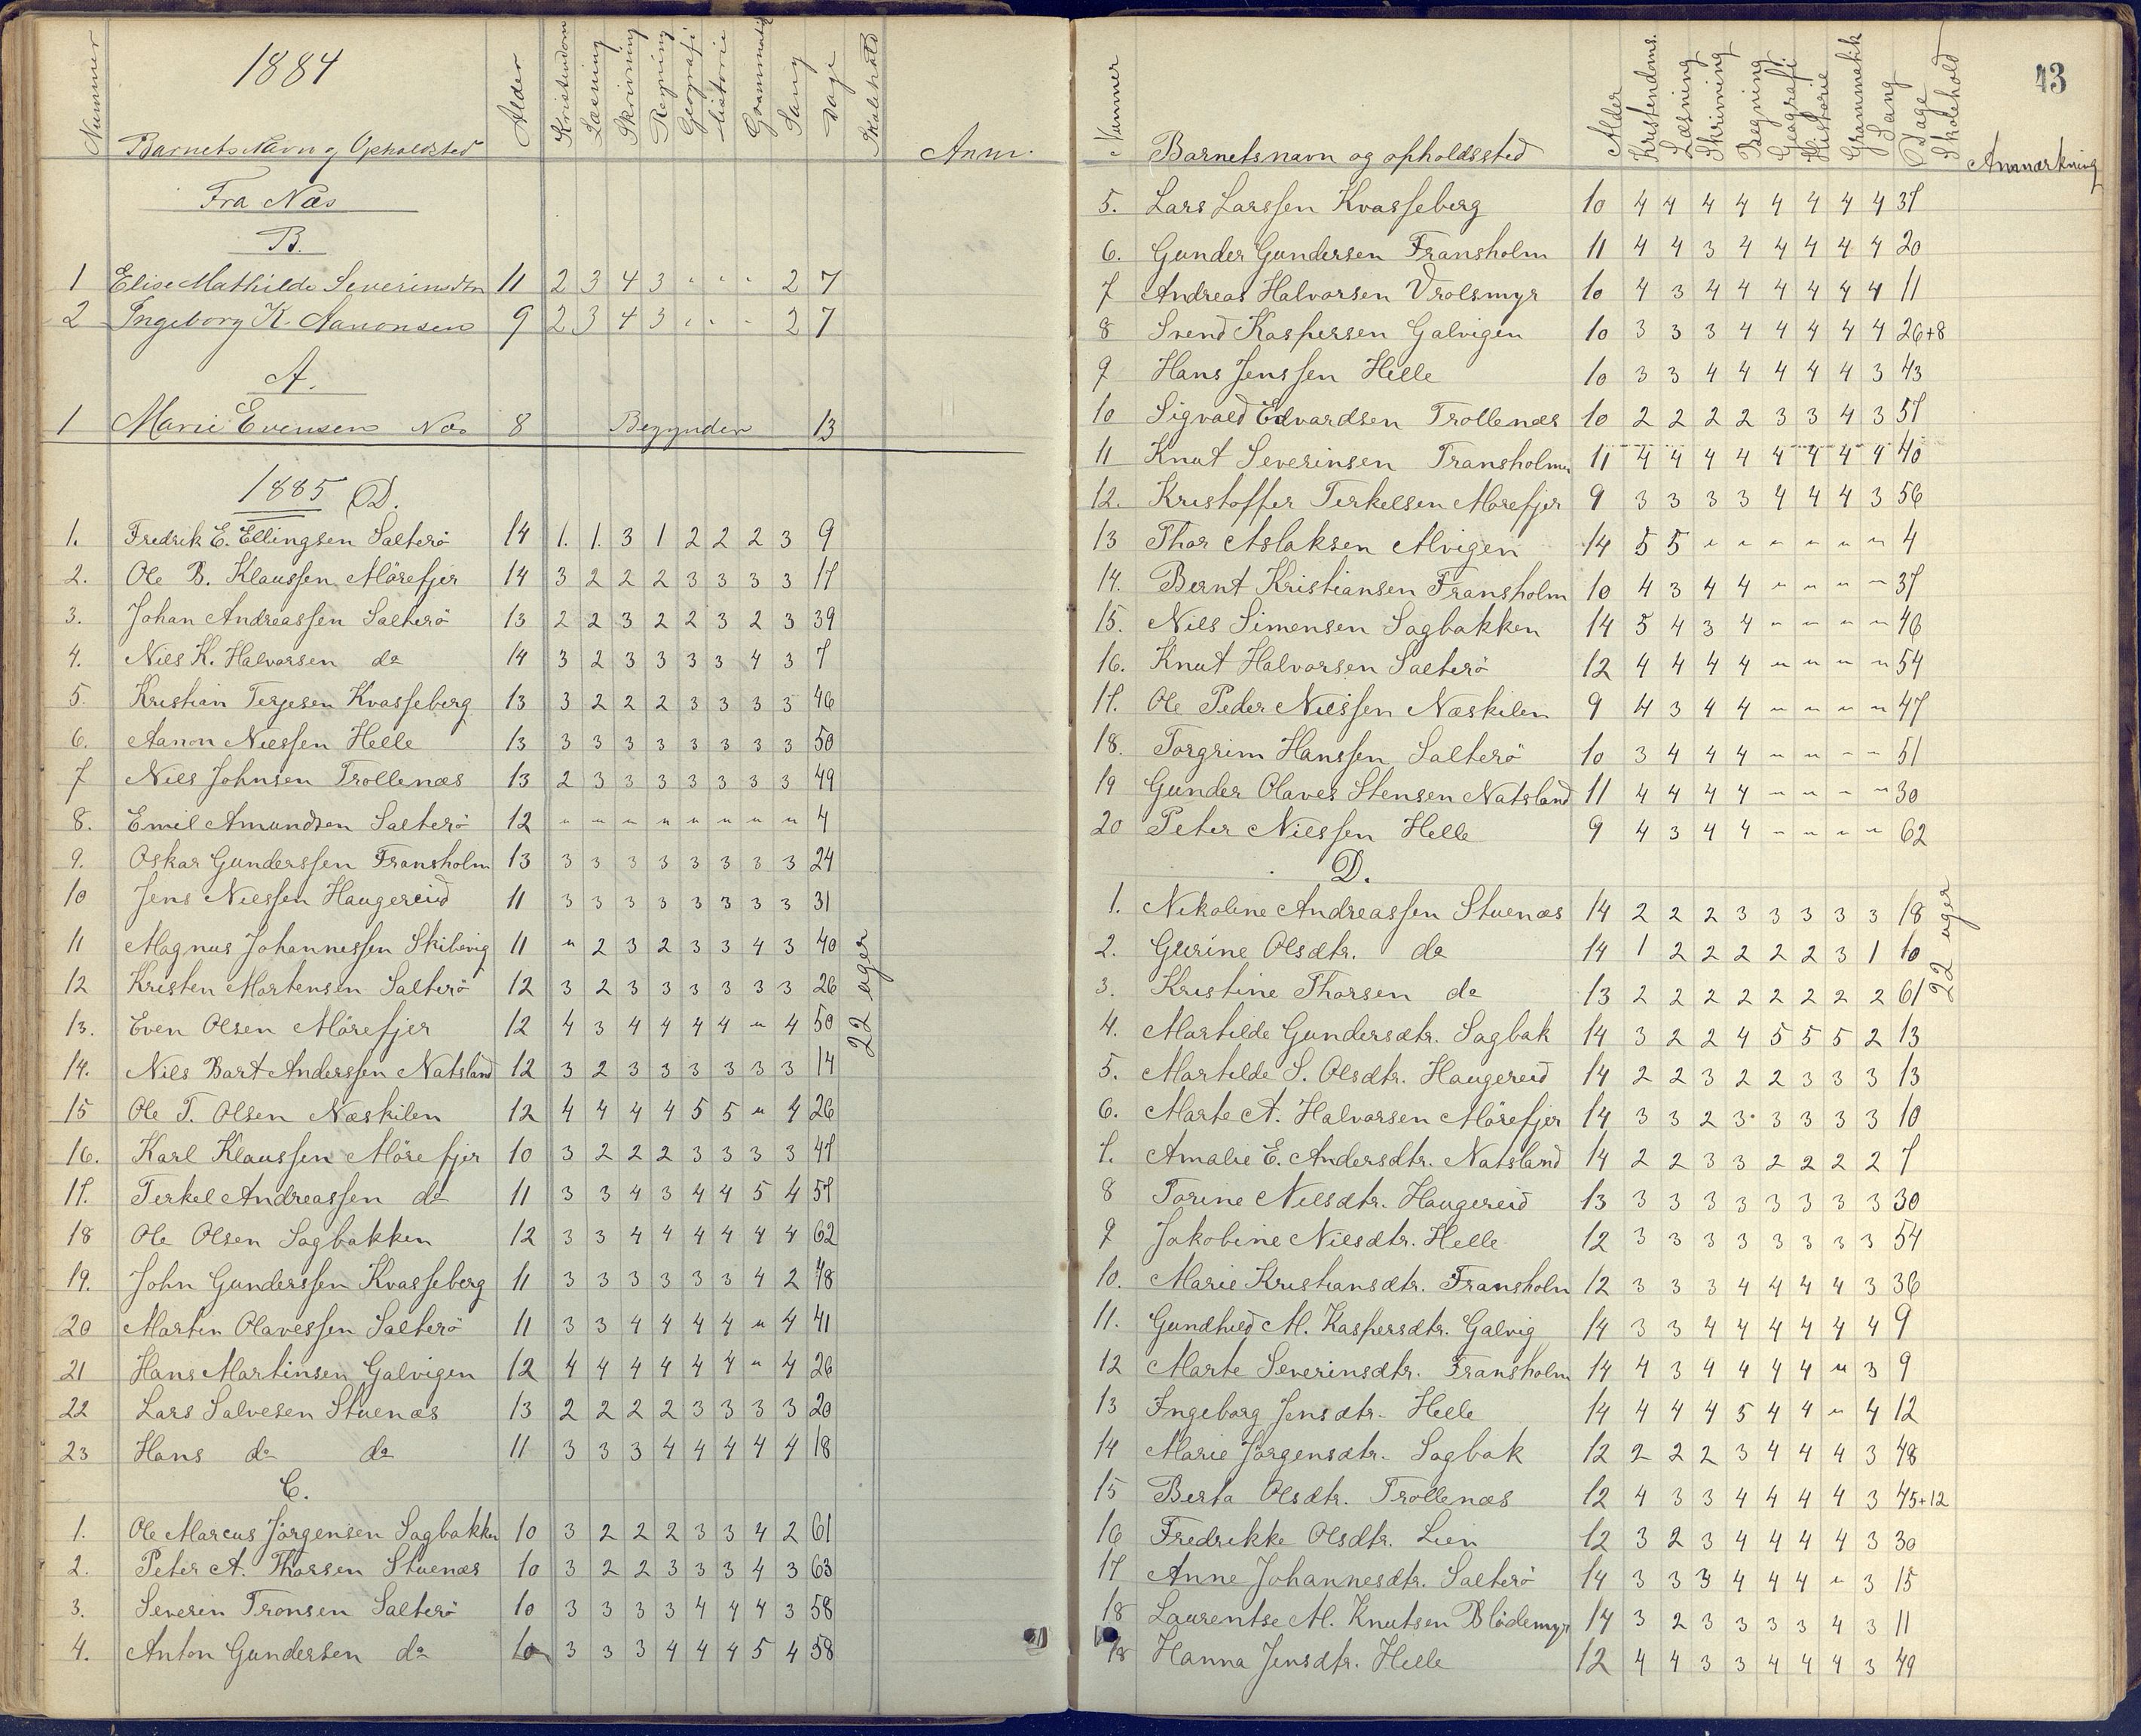 1884
Nummer Barnets Navn og Opholdsted Alder Kristendom Læsning Skrivning Regning Geografi historie Grammatik Sang Dage Skolehold Anm.
Fra Næs
B.
1 Elise Mathilde Severinsdtr 11 2 3 4 3 " " " 2 7
2 Ingeborg K. Aanonsen 9 2 3 4 3 " " " 2 7
A.
1 Marie Evensen Næs 8 Begynder 13
1885 D.
1. Fredrik E. Ellingsen Salterö 14 1. 1. 3 1 2 2 2 3 9
2. Ole B. Klaussen Mörefjer 14 3 2 2 2 3 3 3 3 17
3. Johan Andreassen Salterö 13 2 2 3 2 2 3 2 3 39
4. Niels K. Halvorsen do 14 3 2 3 3 3 3 4 3 7
5. Kristian Terjesen Kvasseberg 13 3 2 2 2 3 3 3 3 46
6. Aanon Nielssen Helle 13 3 3 3 3 3 3 3 3 50
7 Niels Johnsen Trollenæs 13 2 3 3 3 3 3 3 3 49
8. Emil Amundsen Salterö 12 " " " " " " " " 4
9. Oskar Gunderssen Fransholm 13 3 3 3 3 3 3 3 3 24
10 Jens Nielssen Haugereid 11 3 3 3 3 3 3 3 3 31
11 Magnus Johannessen Skibevig 11 " 2 3 2 3 3 4 3 40
12 Kristen Mortensen Salterö 12 3 2 3 3 3 3 3 3 26
13. Even Olsen Mörefjer 12 4 3 4 4 4 4 " 4 50
14. Nils Bart Anderssen Natsland 12 3 2 3 3 3 3 3 3 14
15 Ole T. Olsen Næskilen 12 4 4 4 4 5 5 " 4 26
16. Karl Klaussen Mörefjer 10 3 2 2 2 3 3 3 3 47
17. Terkel Andreassen do 11 3 3 4 3 4 4 5 4 57
18 Ole Olsen Sagbakken 12 3 3 4 4 4 4 4 4 62
19. John Gunderssen Kvasseberg 11 3 3 3 3 3 3 4 2 48
20 Martin Olavessen Salterö 11 3 3 4 4 4 4 " 4 41
21 Hans Martinsen Galvigen 12 4 4 4 4 4 4 " 4 26
22 Lars Salvesen Stuenæs 13 2 2 2 2 3 3 3 3 20
23 Hans do do 11 3 3 3 4 4 4 4 4 18
22 uger
C.
1. Ole Marcus Jörgensen Sagbakken 10 3 2 2 2 3 3 4 2 61
2. Peter A. Thorsen Stuenæs 10 3 2 2 3 3 3 4 3 63
3. Severin Tronsen Salterö 10 3 3 3 3 4 4 4 3 58
4. Anton Gundersen do 10 3 3 3 4 4 4 5 4 58
43
Nummer Barnetsnavn og opholdssted Alder Kristendoms. Læsning Skrivning Regning Geografi Historie Grammatik Sang Dage Skolehold Anmærkning
5. Lars Larssen Kvasseberg 10 4 4 4 4 4 4 4 4 37
6. Gunder Gundersen Fransholm 11 4 4 3 4 4 4 4 4 20
7 Andreas Halvorsen Vrolsmyr 10 4 3 4 4 4 4 4 4 11
8 Svend Kaspersen Galvigen 10 3 3 3 4 4 4 4 4 26+8
9 Hans Jenssen Helle 10 3 3 4 4 4 4 4 3 43
10 Sigvald Edvardsen Trollenæs 10 2 2 2 2 3 3 4 3 57
11 Knut Severinsen Fransholmen 11 4 4 4 4 4 4 4 4 40
12. Kristoffer Terkelsen Mörefjer 9 3 3 3 3 4 4 4 3 56
13 Thor Aslaksen Alvigen 14 5 5 " " " " " " 4
14. Bernt Kristiansen Fransholm 10 4 3 4 4 " " " " 37
15. Niels Simensen Sagbakken 14 5 4 3 4 " " " " 46
16. Knut Halvorsen Salterö 12 4 4 4 4 " " " " 54
17. Ole Peder Nielssen Næskilen 9 4 3 4 4 " " " " 47
18. Torgrim Hanssen Salterö 10 3 4 4 4 " " " " 51
19 Gunder Olaves Stensen Natsland 11 4 4 4 4 " " " " 30
20 Peter Nielssen Helle 9 4 3 4 4 " " " " 62
D.
1. Nikoline Andreassen Stuenæs 14 2 2 2 3 3 3 3 3 18
2. Gurine Olsdtr. do 14 1 2 2 2 2 2 3 1 10
3. Kristine Thorsen do 13 2 2 2 2 2 2 2 2 61
22 uger
4. Martilde Gundersdtr. Sagbak 14 3 2 2 4 5 5 5 2 13
5. Martilde S. Olsdtr. Haugereid 14 2 2 3 2 2 3 3 3 13
6. Marte A. Halvorsen Mörefjer 14 3 3 2 3 3 3 3 3 10
7. Amalie E. Andersdtr. Natsland 14 2 2 3 3 2 2 2 2 7
8 Torine Nielsdtr. Haugereid 13 3 3 3 3 3 3 3 3 30
9 Jakobine Nielsdtr. Helle 12 3 3 3 3 3 3 3 3 54
10. Marie Kristiansdtr. Fransholm 12 3 3 3 4 4 4 4 3 36
11. Gundhild M. Kaspersdtr. Galvig 14 3 3 4 4 4 4 4 4 9
12 Marte Severinsdtr. Fransholm 14 4 3 4 4 4 4 " 3 9
13 Ingeborg Jensdtr. Helle 14 4 4 4 5 4 4 " 4 12
14 Marie Jörgensdtr. Sagbak 12 2 2 2 3 4 4 4 3 48
15 Berta Olsdtr. Trollenæs 12 4 3 3 4 4 4 4 3 45+12
16 Fredrikke Olsdtr. Lien 12 3 2 3 4 4 4 4 3 30
17 Anne Johannesdtr. Salterö 14 3 3 3 4 4 4 " 3 15
18 Laurentse M. Knutsen Blödemyr 14 3 2 3 3 3 3 4 3 11
18 Hanna Jensdtr. Helle 12 4 4 3 3 4 4 4 3 49